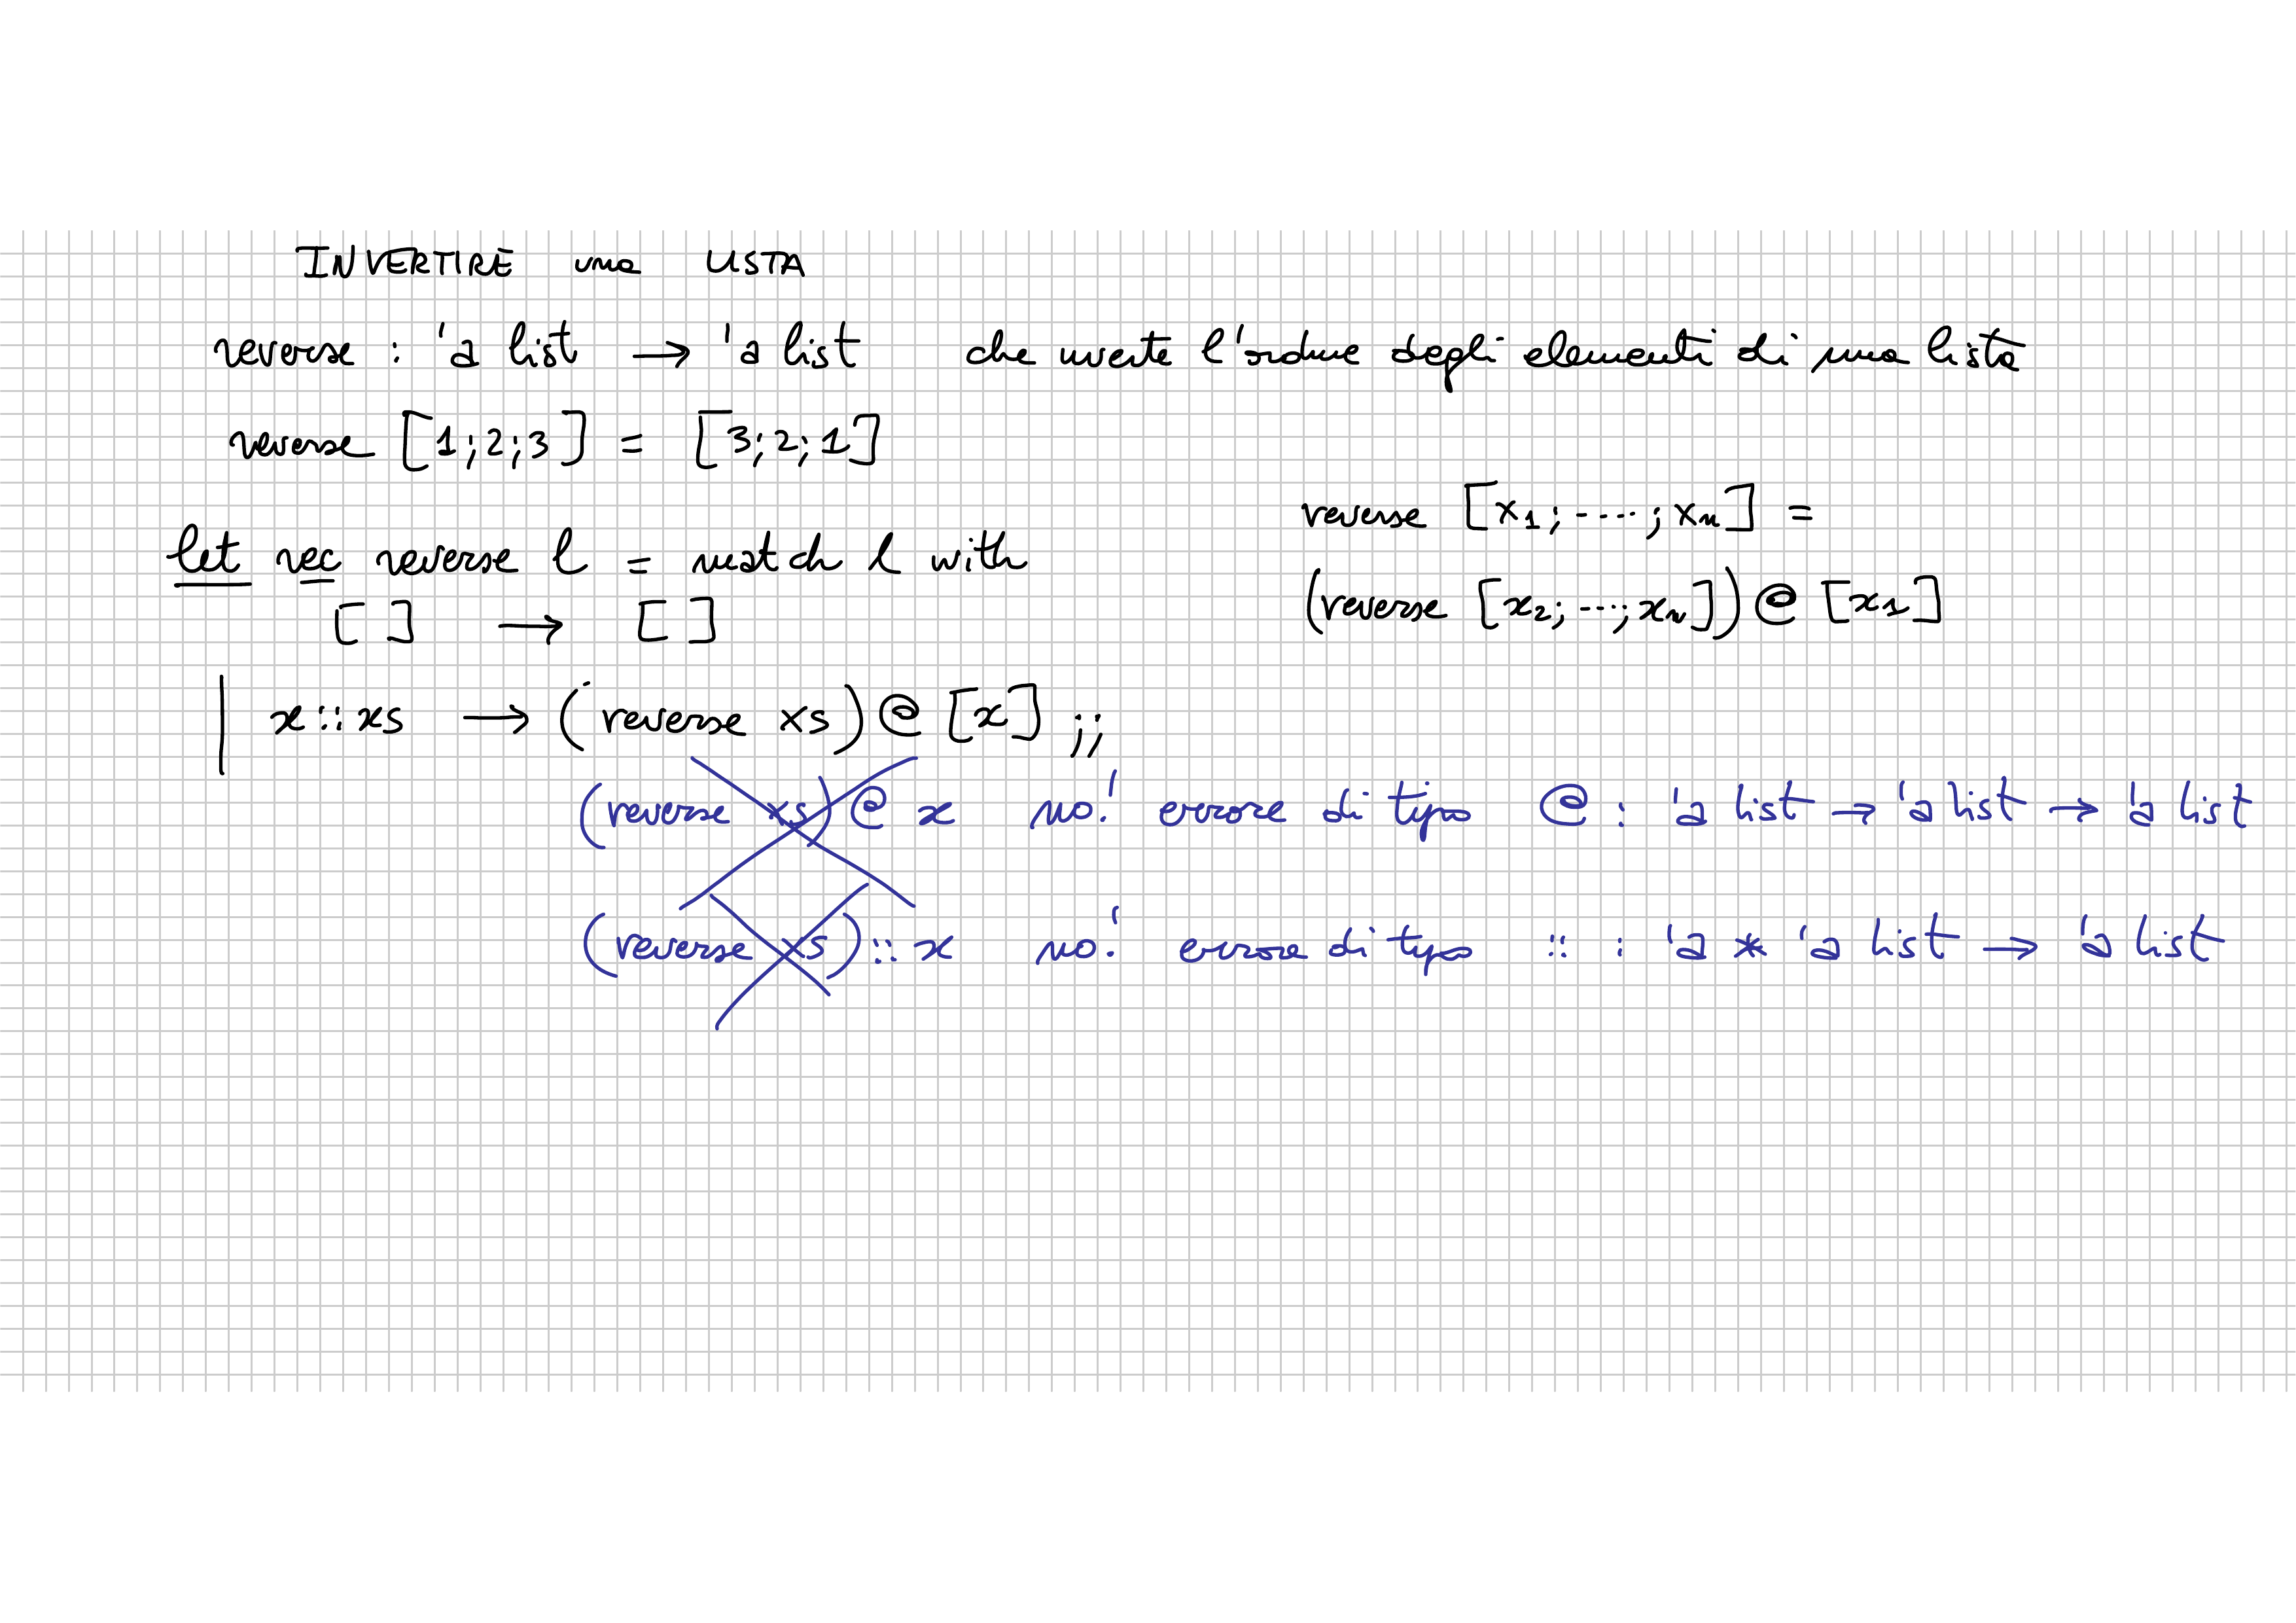 INVERTIRE una LISTA
reverse : 'a list → 'a list che inverte l'ordine degli elementi di una lista
reverse [1;2;3] = [3;2;1]
reverse [x1; ....; xn] =
(reverse [x2; ...; xn]) @ [x1]
let rec reverse l = match l with
[ ] → [ ]
| x::xs → (reverse xs) @ [x] ;;
(reverse xs) @ x no! errore di tipo @ : 'a list → 'a list → 'a list
(reverse xs) :: x no! errore di tipo :: : 'a * 'a list → 'a list